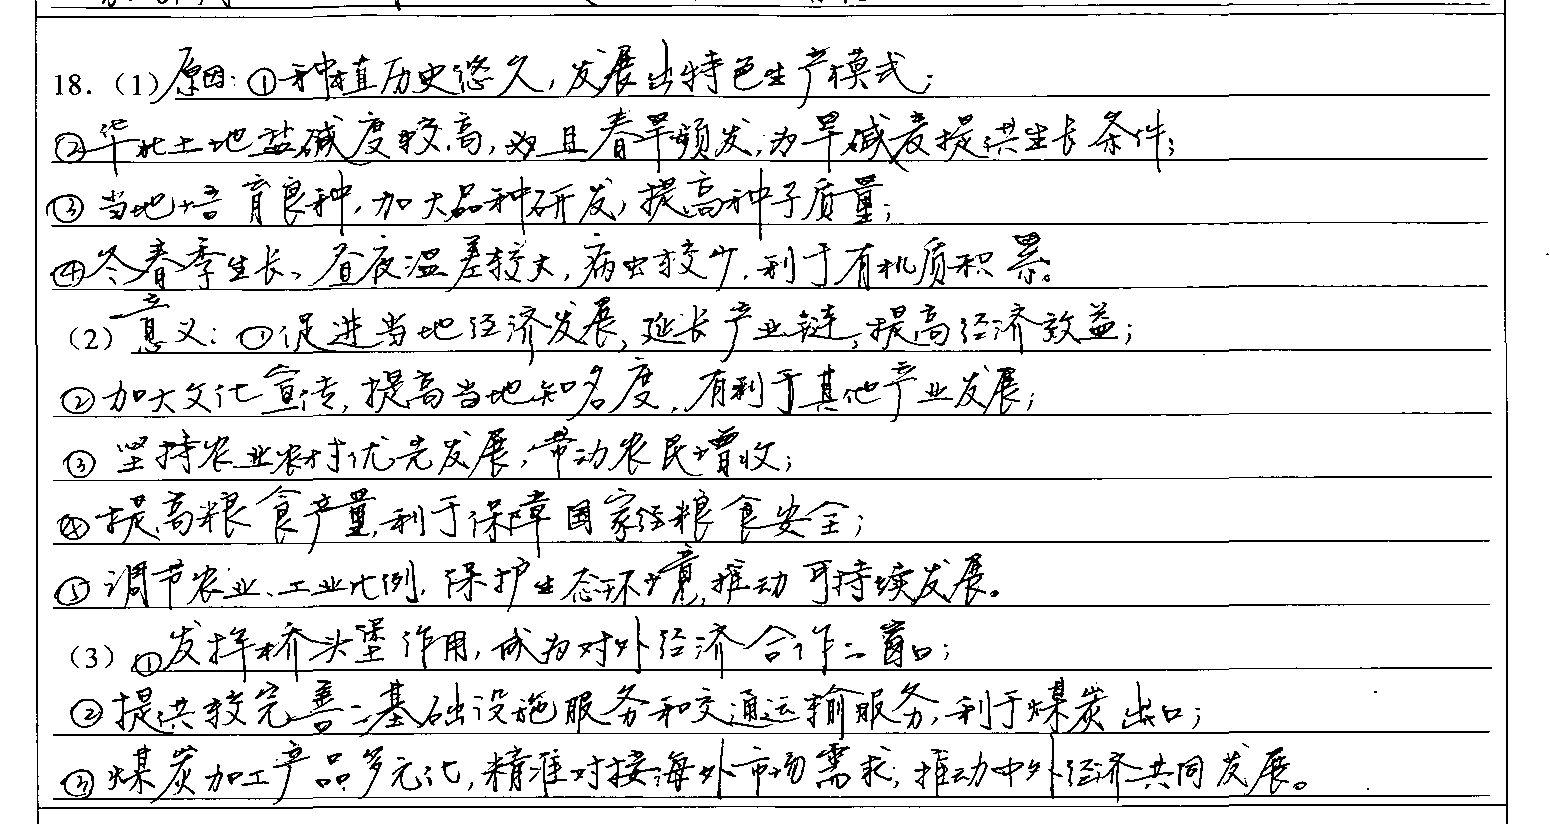 18.（1）原因：①种植历史悠久，发展出特色生产模式；
②华北土地盐碱度较高，并且春旱频发，为旱碱麦提供生长条件；
③当地培育良种，加大品种研发，提高种子质量；
④冬春季生长、昼夜温差较大，病虫较少，利于有机质积累。
（2）意义：①促进当地经济发展，延长产业链，提高经济效益；
②加大文化宣传，提高当地知名度，有利于其他产业发展；
③坚持农业农村优先发展，带动农民增收；
④提高粮食产量，利于保障国家粮食安全；
⑤调节农业、工业比例，保护生态环境，推动可持续发展。
（3）①发挥桥头堡作用，成为对外经济合作窗口；
②提供较完善基础设施服务和交通运输服务，利于煤炭出口；
③煤炭加工产品多元化，精准对接海外市场需求，推动中外经济共同发展。